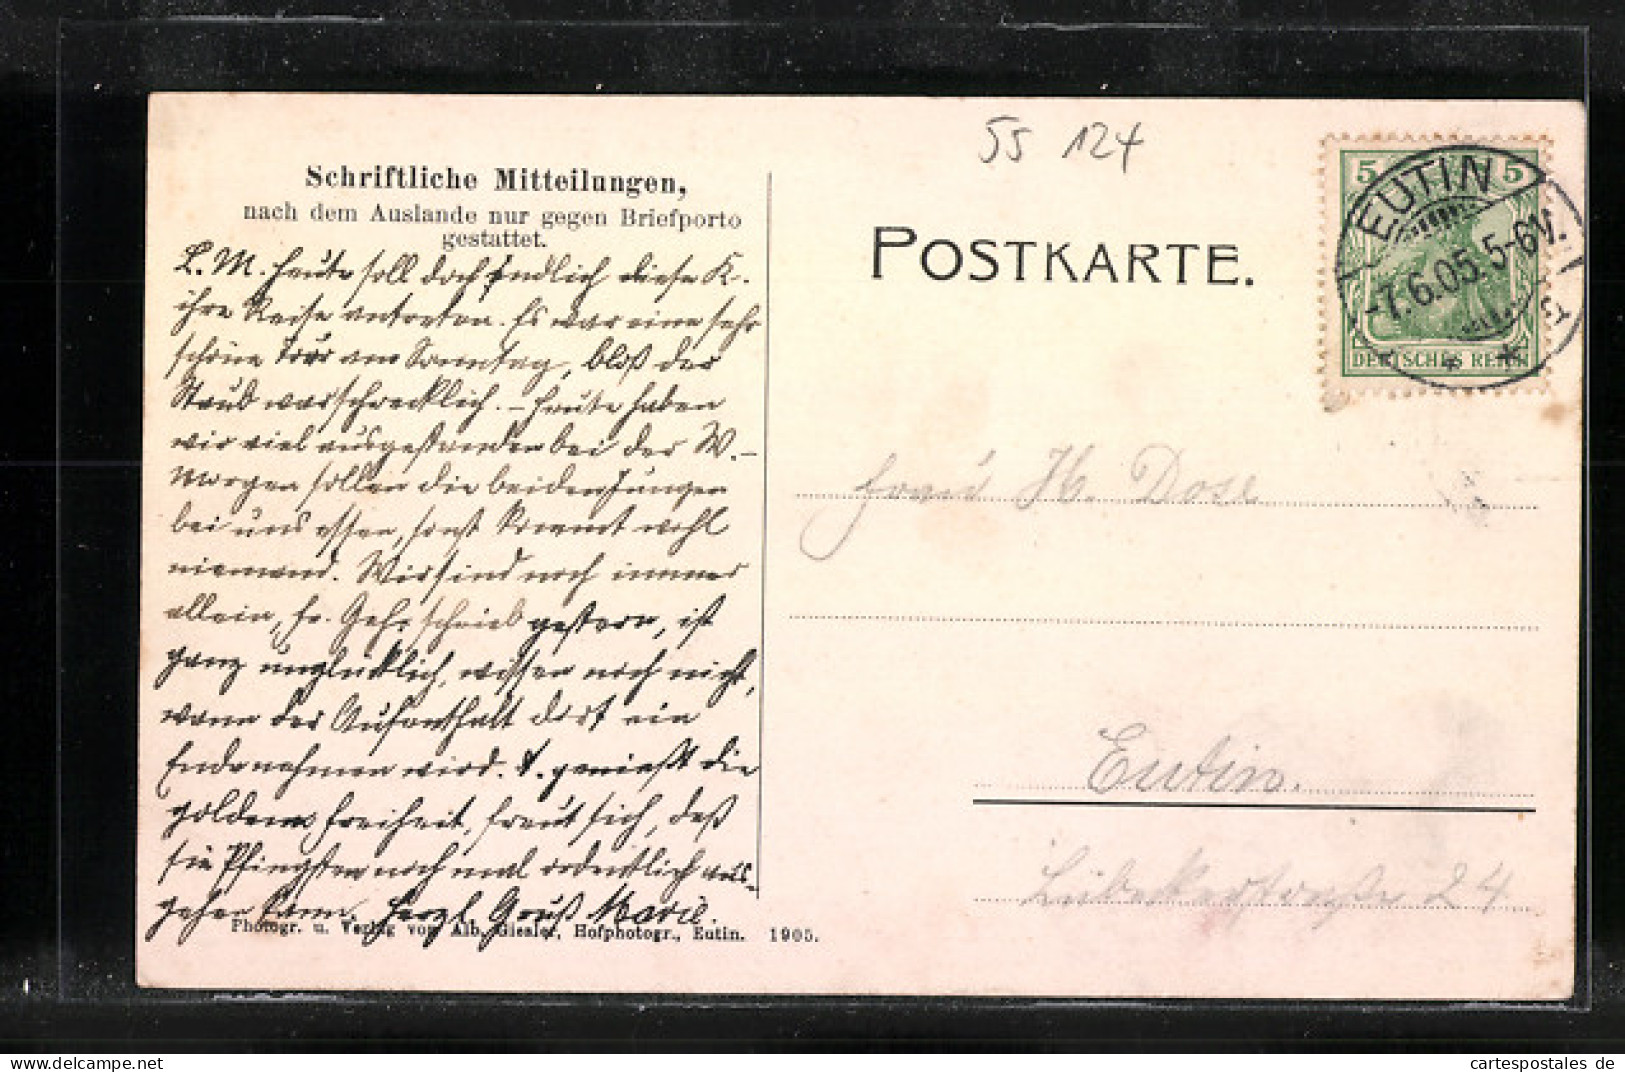 55 124
Schriftliche Mitteilungen,
nach dem Auslande nur gegen Briefporto
gestattet.
L. M. Heute soll doch endlich diese K.
ihre Reise antreten. Es war eine sehr
schöne Tour am Sonntag, bloß der
Staub war schrecklich. – Heute haben
wir viel ausgestanden bei der W. –
Morgen sollen die beiden Jungen
bei uns essen, sonst kommt wohl
niemand. Wir sind noch immer
allein, Fr. Geh. schrieb gestern, ist
ganz unglücklich, wissen noch nicht,
wann der Aufenthalt dort ein
Ende nehmen wird. genießt die
goldene Freiheit, freut sich, daß
sie Pfingsten noch mal ordentlich aus-
gehen kann. Herzl. Gruß Marie.
Photogr. u. Verlag von Alb. Giesler, Hofphotogr., Eutin. 1905.
POSTKARTE.
5 5
EUTIN
-7.6.05.5-6V.
DEUTSCHES REICH
Frau H. Dose
Eutin.
Lübeckerstraße 24
cartespostales de